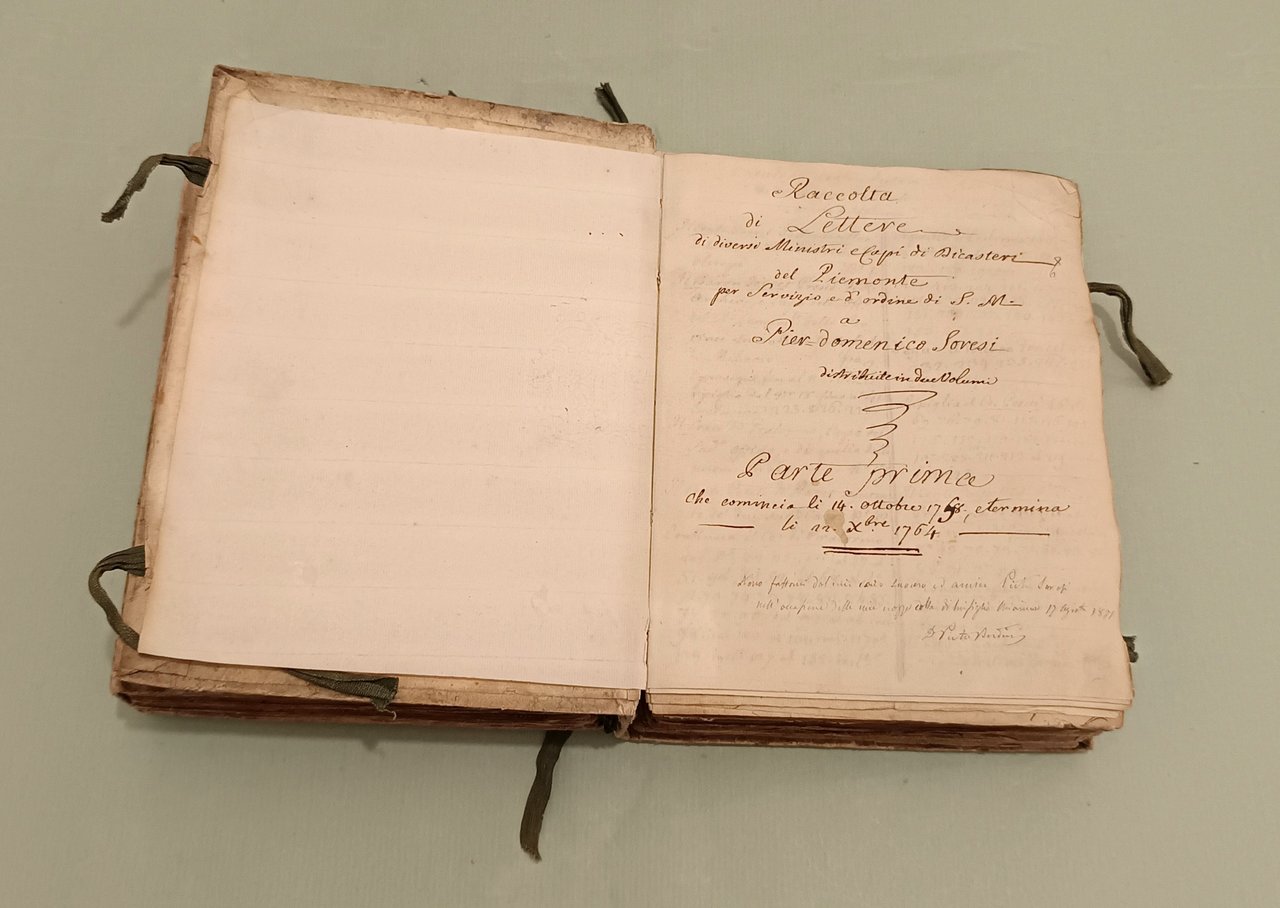 Raccolta
di Lettere
di diversi Ministri e Capi di Dicasteri
del Piemonte
per Servizio e d'ordine di S. M.
a
Pier=domenico Soresi
distribuite in due Volumi
Parte prima
che comincia li 14. ottobre 17, e termina
li 22. Xbre 1764
Dono fattomi dal mio caro suocero ed amico
nell'occasione delle mie nozze colla di lui figlia 17 Agosto
D. Pietro